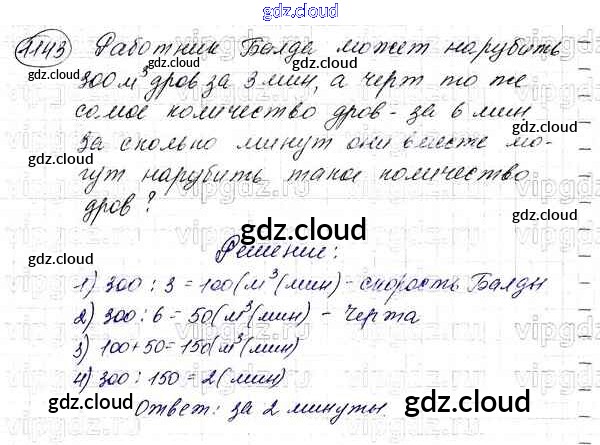 gdz.cloud
1143 Работник Балда может нарубить
300 м³ дров за 3 мин, а черт то же
самое количество дров - за 6 мин
За сколько минут они вместе мо-
гут нарубить такое количество
дров?
Решение:
1) 300 : 3 = 100 (м³(мин) - скорость Балды
2) 300 : 6 = 50 (м³(мин) - Черта
3) 100+50=150(м³(мин)
4) 300 : 150 = 2 (мин)
Ответ: за 2 минуты.
gdz.cloud
gdz.cloud